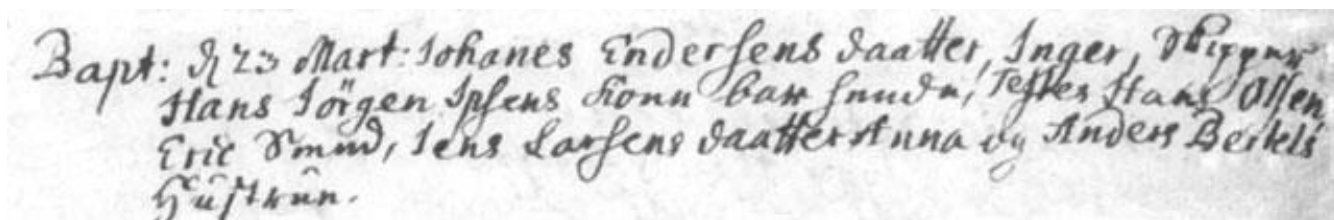 Bapt: d 23 Mart: Johanes Endersens daatter, Inger, Skipper
Hans Jörgen Ipsens Konn bar hende, Testes Hans Olsen,
Eric Smed, Jens Larsens daatter Anna og Anders Bertels
Hüstrün.